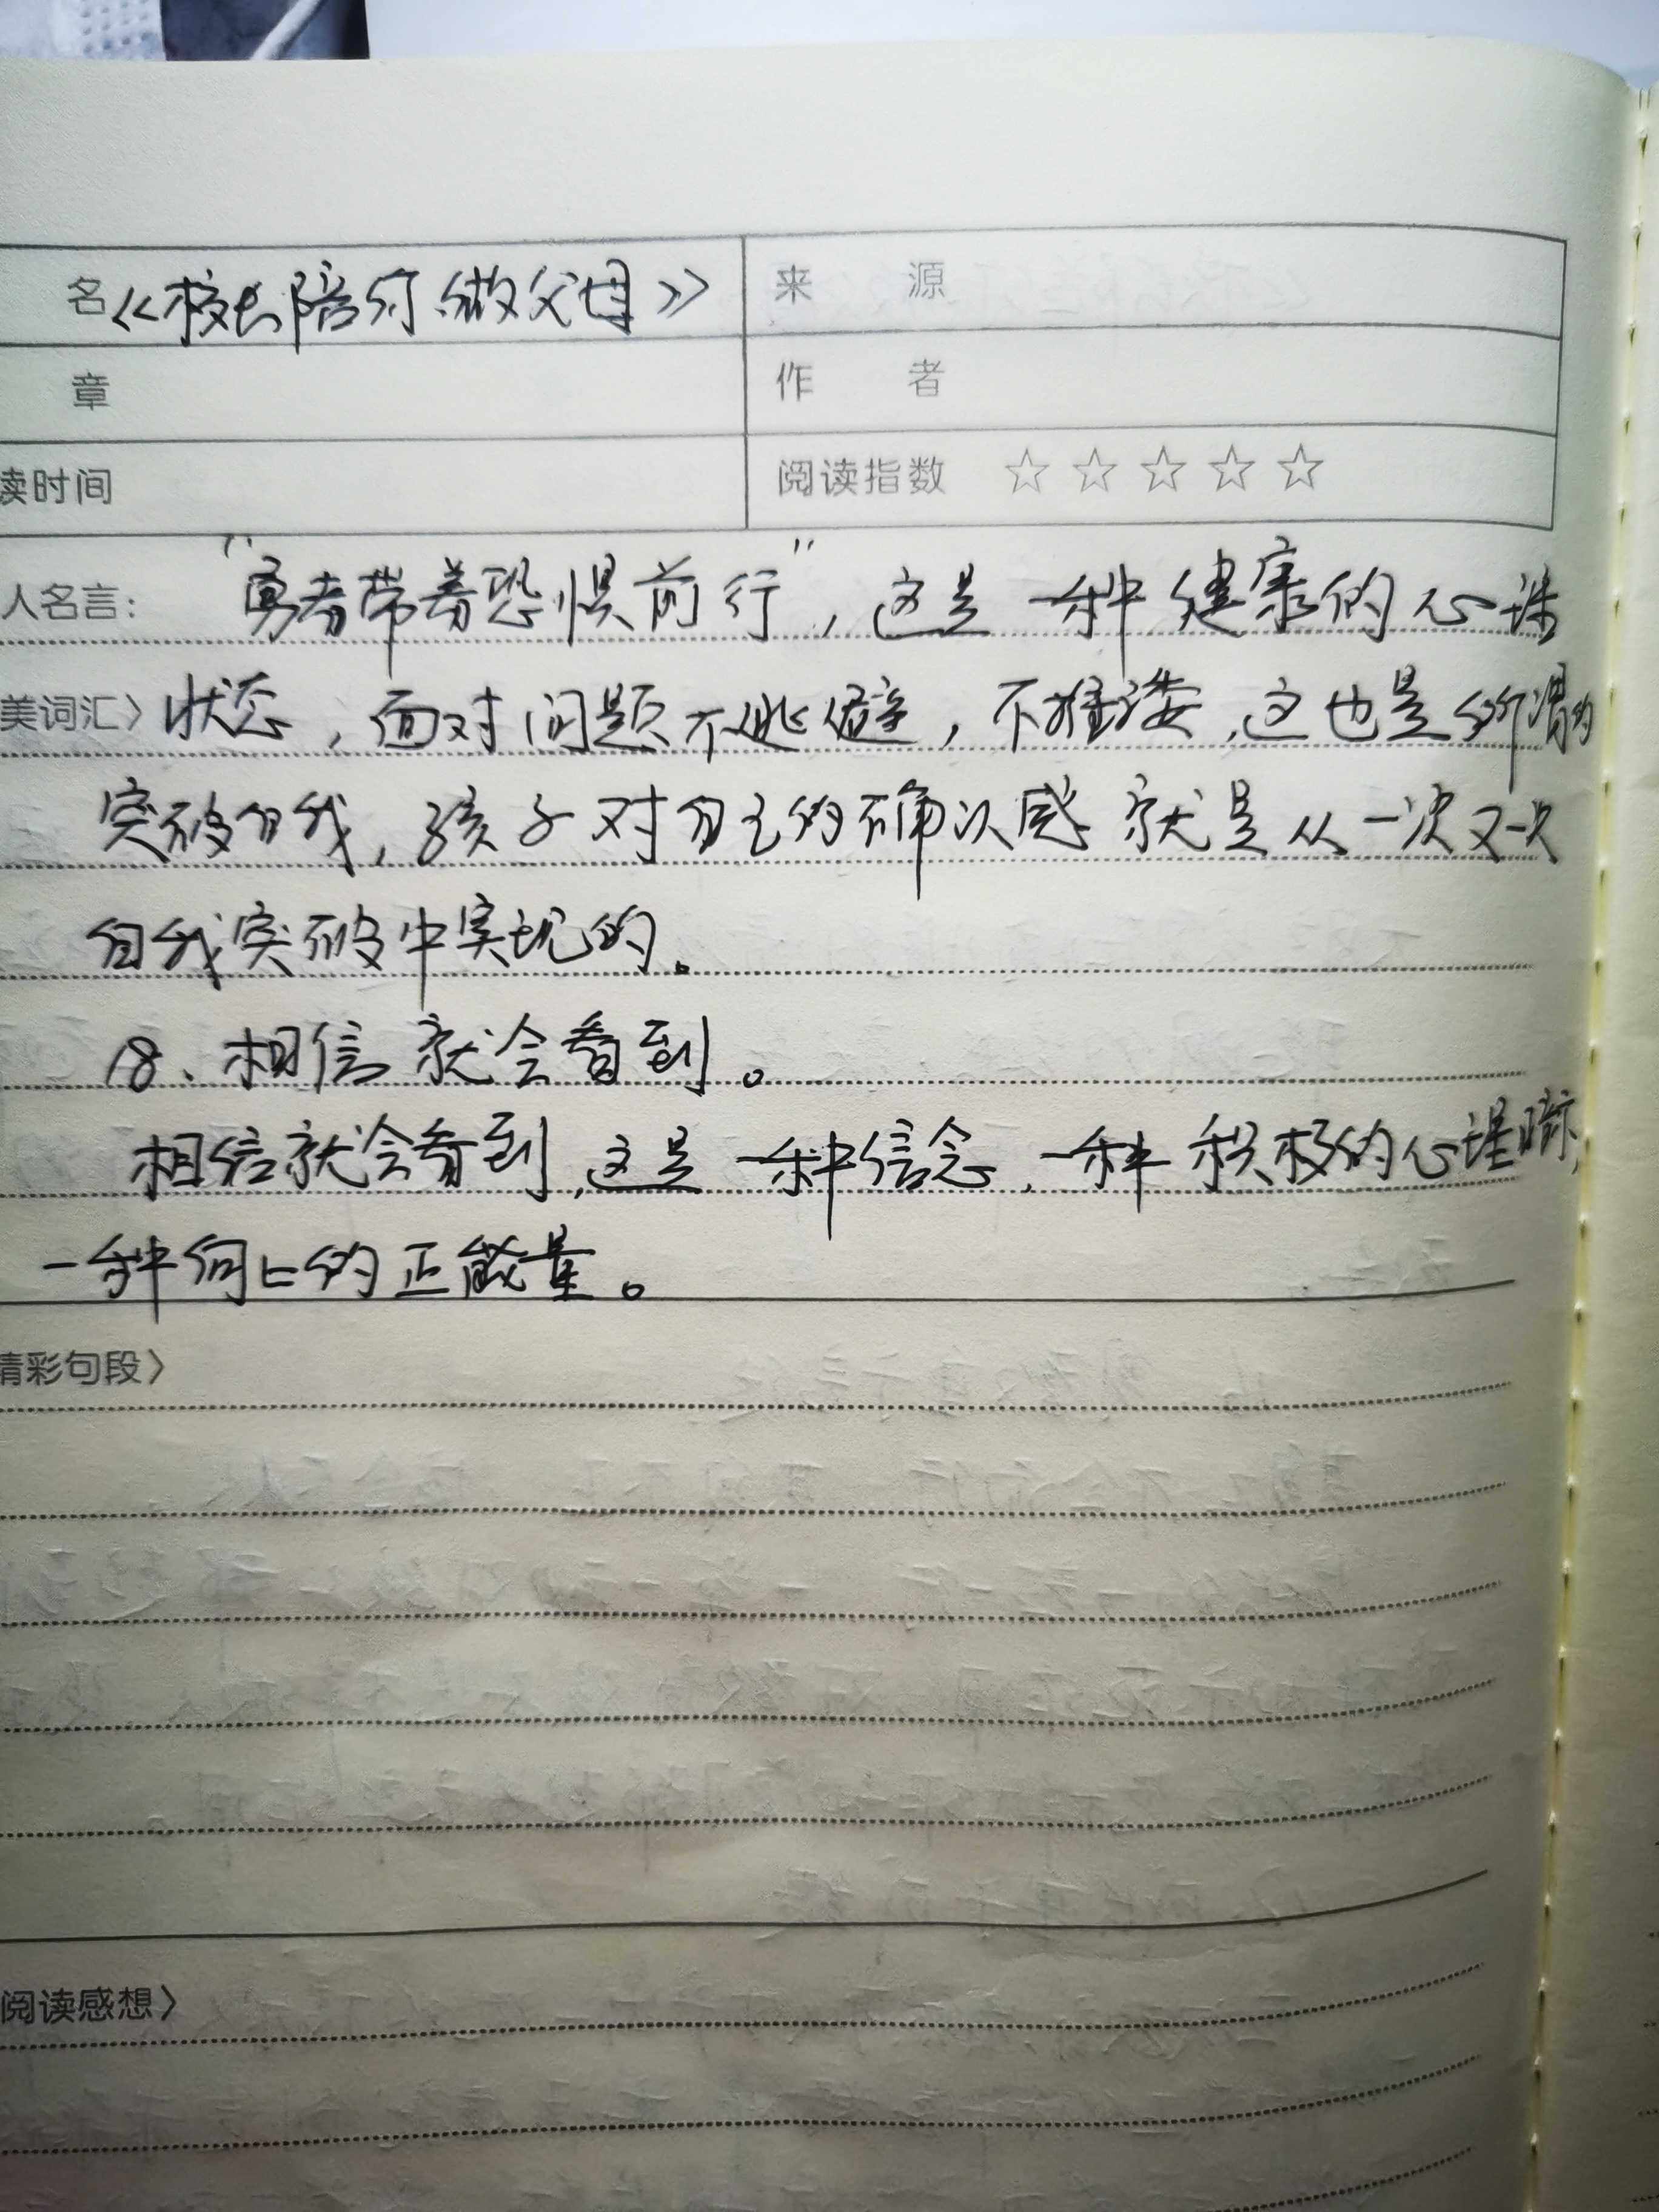 名《校长陪你做父母》 来 源
章 作 者
读时间 阅读指数 ☆☆☆☆☆
人名言: "勇者带着恐惧前行",这是一种健康的心
美词汇〉状态,面对问题不逃避,不推诿,这也是所谓的
突破自我,孩子对自己的确认感就是从一次又一次
自我突破中实现的。
18、相信就会看到。
相信就会看到,这是一种信念,一种积极的心理暗示,
一种向上的正能量。
精彩句段〉
阅读感想〉